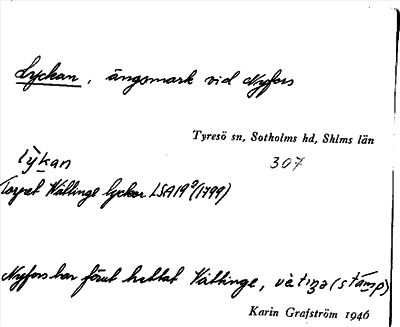 Lyckan, ängsmark vid Nyfors
Tyresö sn, Sotholms hd, Shlms län
307
lỳkan
Torpet Wättinge lyckor LSA 19⁹ (1799)
Nyfors har förut hettat Vättinge, vètiŋə (stamp)
Karin Grafström 1946